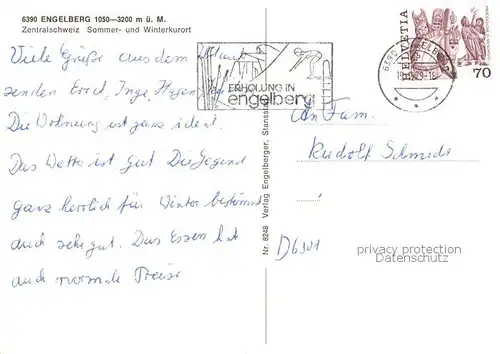 6390 ENGELBERG 1050—3200 m ü. M.
Zentralschweiz Sommer- und Winterkurort
Viele Grüße aus dem Urlaub
senden Ernst, Inge, Hagen
Die Wohnung ist ganz ideal.
Das Wetter ist gut Die Gegend
ganz herrlich für Winter bestimmt
auch sehr gut. Das Essen hat
auch normale Preise
Nr. 8248 Verlag Engelberger, Stansstad
ERHOLUNG IN
engelberg
6390 ENGELBERG
HELVETIA
70
An Fam.
Rudolf Schmidt
D6901
privacy protection
Ansichtskarten-Center.de